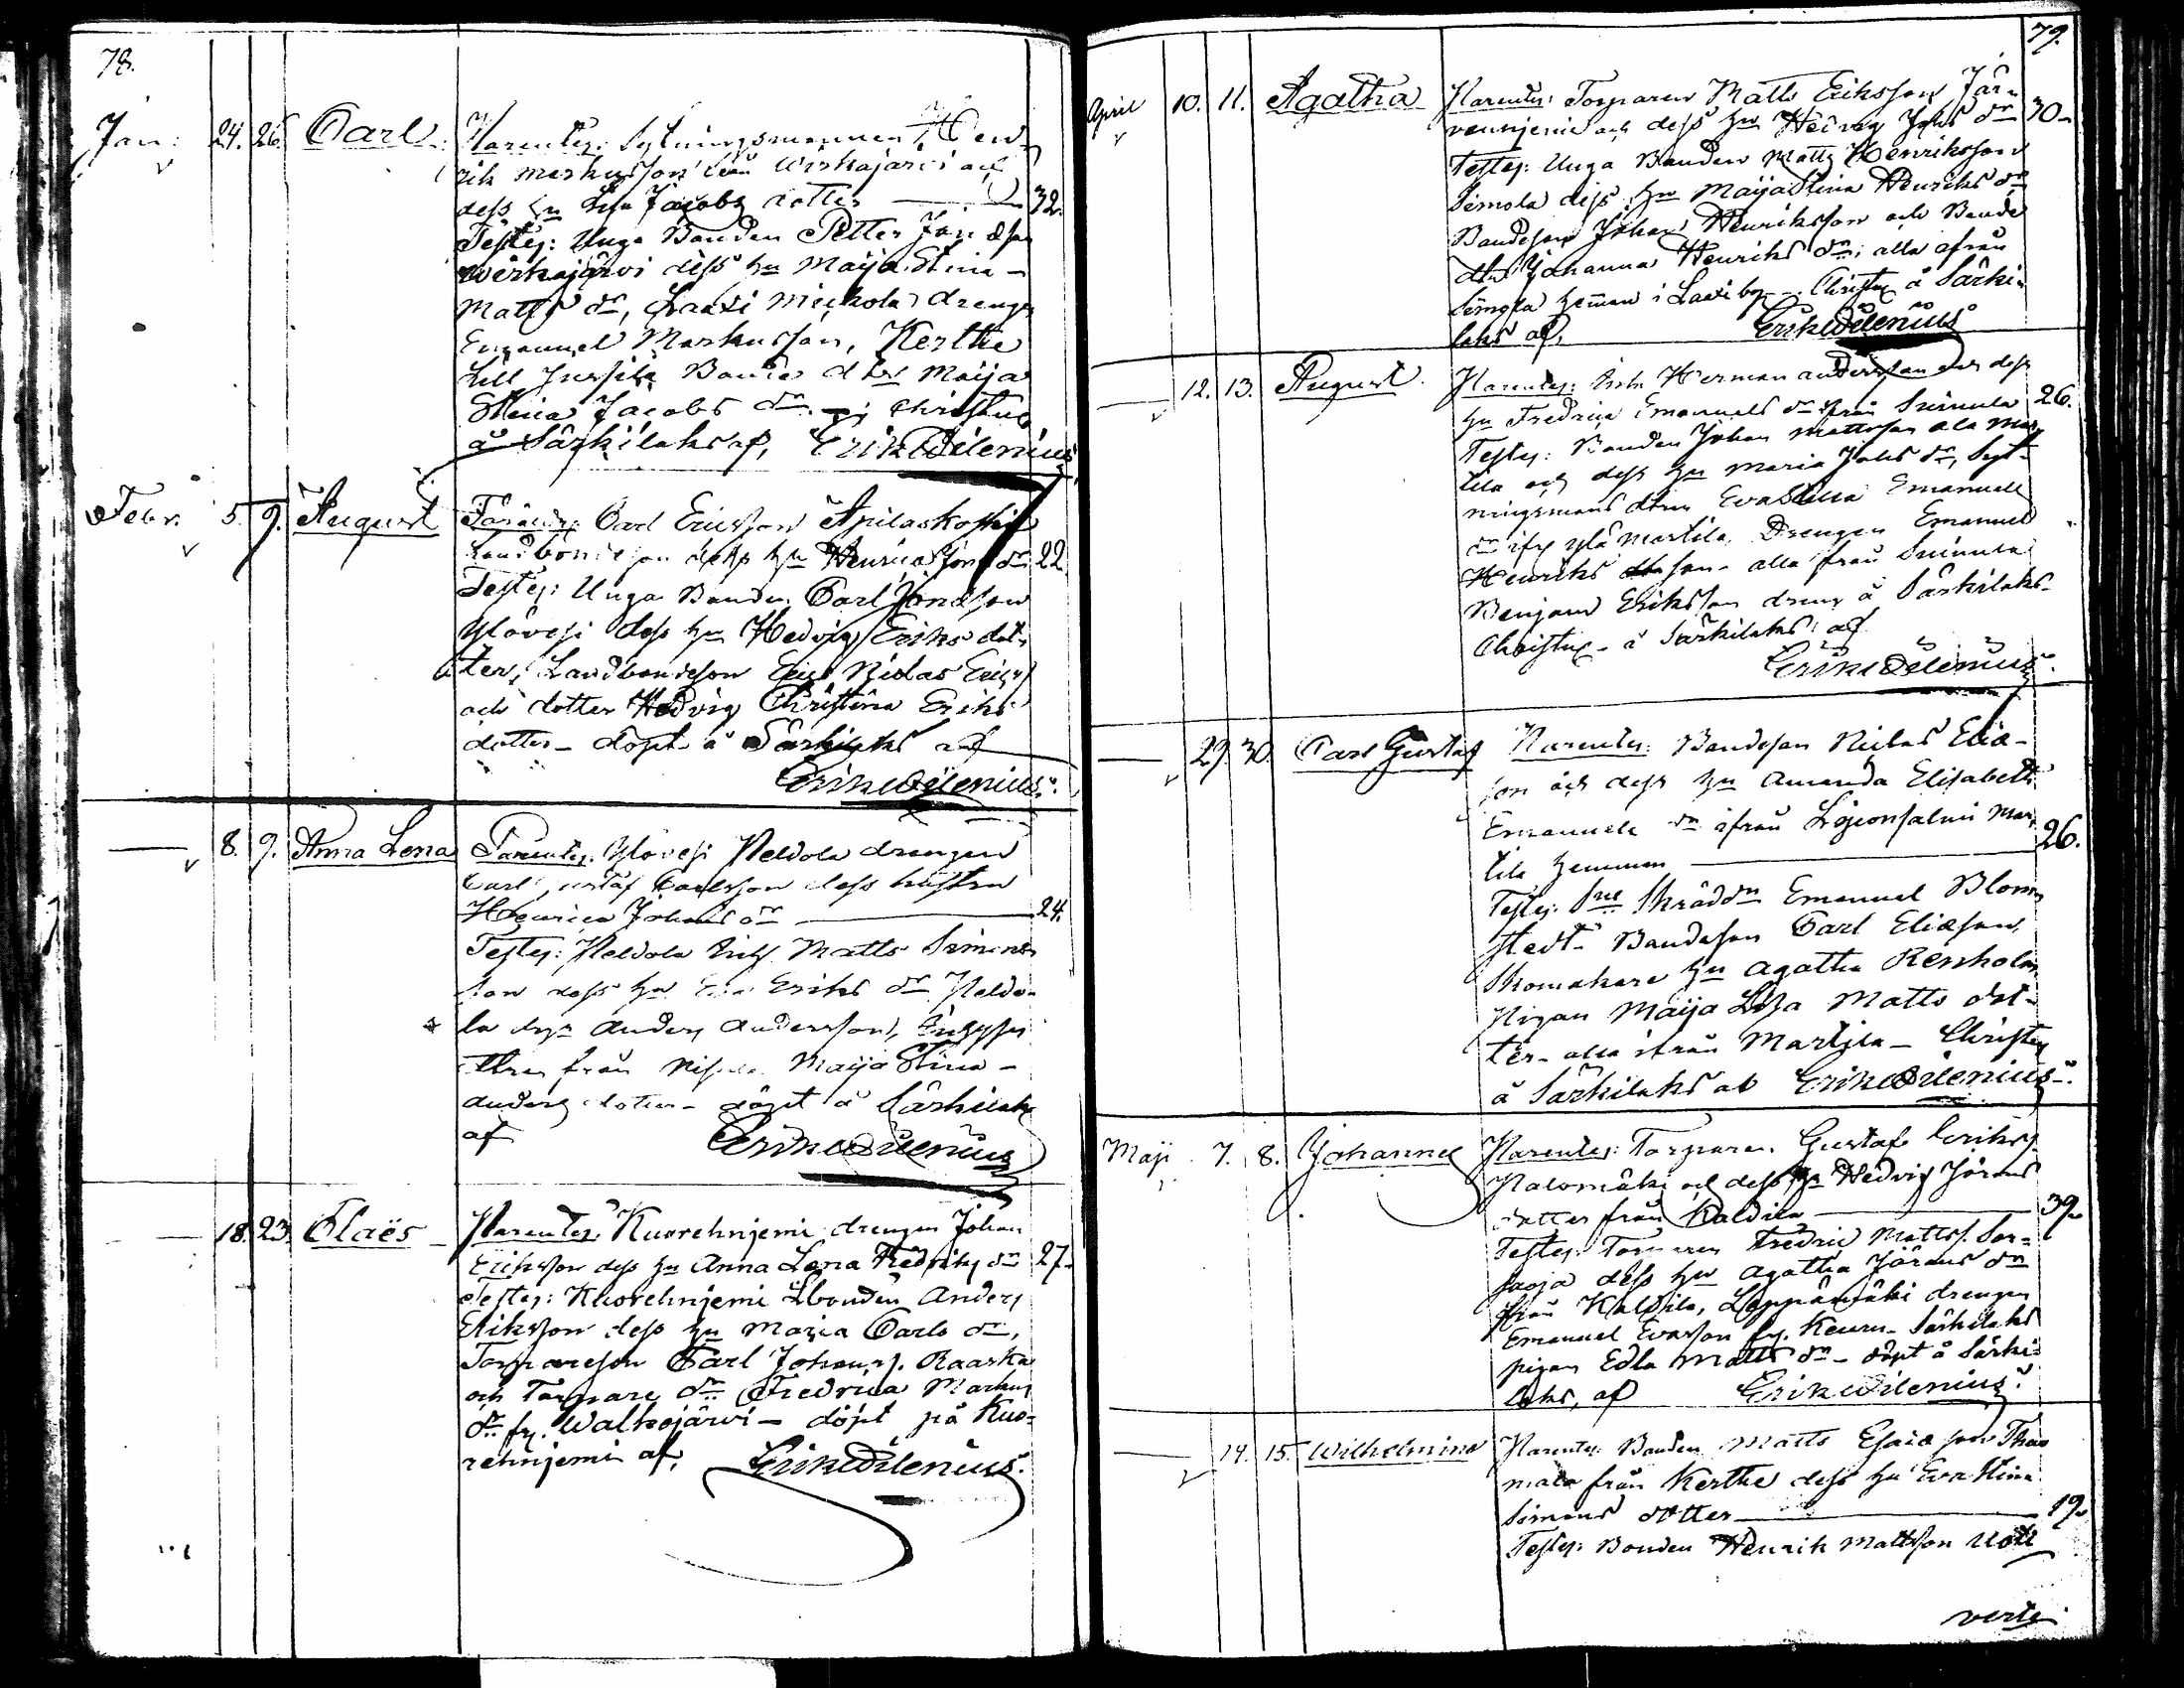 78.
Jan: 24. 26. Carl. Parentes: Sytningsmannen Hen-
rik Markusson från Wirkajärvi och
dess hu Lisa Jacobs dotter 32.
Testes: Unga Bonden Petter Jonasson
Wirkajärvi dess hu Maija Stina
Matts dr, Laxi Mickola drengen
Emanuel Markusson, Kerthe
Lill Jussila Bonde dtr Maija
Stina Jacobs dr christnad
å Särkilaks af, Erik Wilenius
Febr. 5. 9. August Parentes: Carl Ericsson Apilaskoski
Landbondeson dess hu Henrica Jons dr 22
Testes: Unga Bonden Carl Jonasson
Ylövesi dess hu Hedvig Eriks dot-
ter, Landbondeson Niclas
och dotter Hedvig Christina Eriks
dotter - döpt å Särkilaks af
Erik Wilenius.
8. 9. Anna Lena Parentes: Ylövesi Peldola drengen
Carl Gustaf Carlsson dess hustru
Henrica Johans dr 24.
Testes: Peldola Matts Simons
son dess hu Eva Eriks dr Peldo-
la Anders Andersson,
från Maija Stina
Anders dotter - döpt å Särkilaks
af Erik Wilenius
18. 23. Claës Parentes: Kuorehnjemi drengen Johan
Eriksson dess hu Anna Lena Fredriks dr 27.
Testes: Kuorehnjemi Lbonden Anders
Eriksson dess hu Maria Carls dr,
Torpareson Carl Johanss. Raaska
och Torpare dr Fredrica Markus
dr fr. Walkojärvi - döpt på Kuo-
rehnjemi af, Erik Wilenius.
79.
April 10. 11. Agatha Parentes: Torparen Matts Eriksson Jär-
vennjemi och dess hu Hedvig Johs dr 30.
Testes: Unga Bonden Matts Henriksson
Simola dess hu Maija Stina Henriks dr
Bondeson Johan Henriksson och Bonde
dtr Johanna Henriks dr, alla från
Simola heman i Laxi by - Christn å Särki-
laks af, Erik Wilenius
12. 13. August. Parentes: Herman Andersson och dess
hu Fredrica Emanuels dr från Suinula 26.
Testes: Bonden Johan Mattsson Ala Mar-
tila och dess hu Maria Johs dr, Syt-
ningsmans dtren Eva Stina Emanuels
dr ifr Ylä Martila, Drengen Emanuel
Henriks son - alla från Suinula
Benjam Eriksson dreng å Särkilaks -
Christn - å Särkilaks af
Erik Wilenius.
29. 30. Carl Gustaf Parentes: Bondeson Niclas Elia-
son och dess hu Amanda Elisabeth
Emanuels dr ifrån Lejonsalmi Mar-
tila hemman 26.
Testes: Skrädd Emanuel Blom-
stedt - Bondeson Carl Eliason,
Skomakare hu Agatha Renholm
Pigan Maija Lisa Matts dot-
ter - alla ifrån Martila - Christn
å Särkilaks af Erik Wilenius.
Maji 7. 8. Johannes Parentes: Torparen Gustaf Eriks.
Palomäki och dess hu Hedvig Jörans
dotter från Kaldila 39.
Testes: Torparen Fredric Matts. Sor-
paoja dess hu Agatha Jörans dr
från Kaldila, Leppämäki drengen
Emanuel Evasson fr. Keuru - Särkilaks
pigan Edla Matts dr - döpt å Särki-
laks, af Erik Wilenius.
14. 15. Wilhelmina Parentes: Bonden Matts Esaiason Tho-
mala från Kerthe dess hu Eva Stina
Simons dotter 19.
Testes: Bonden Henrik Mattsson Uoti
verte